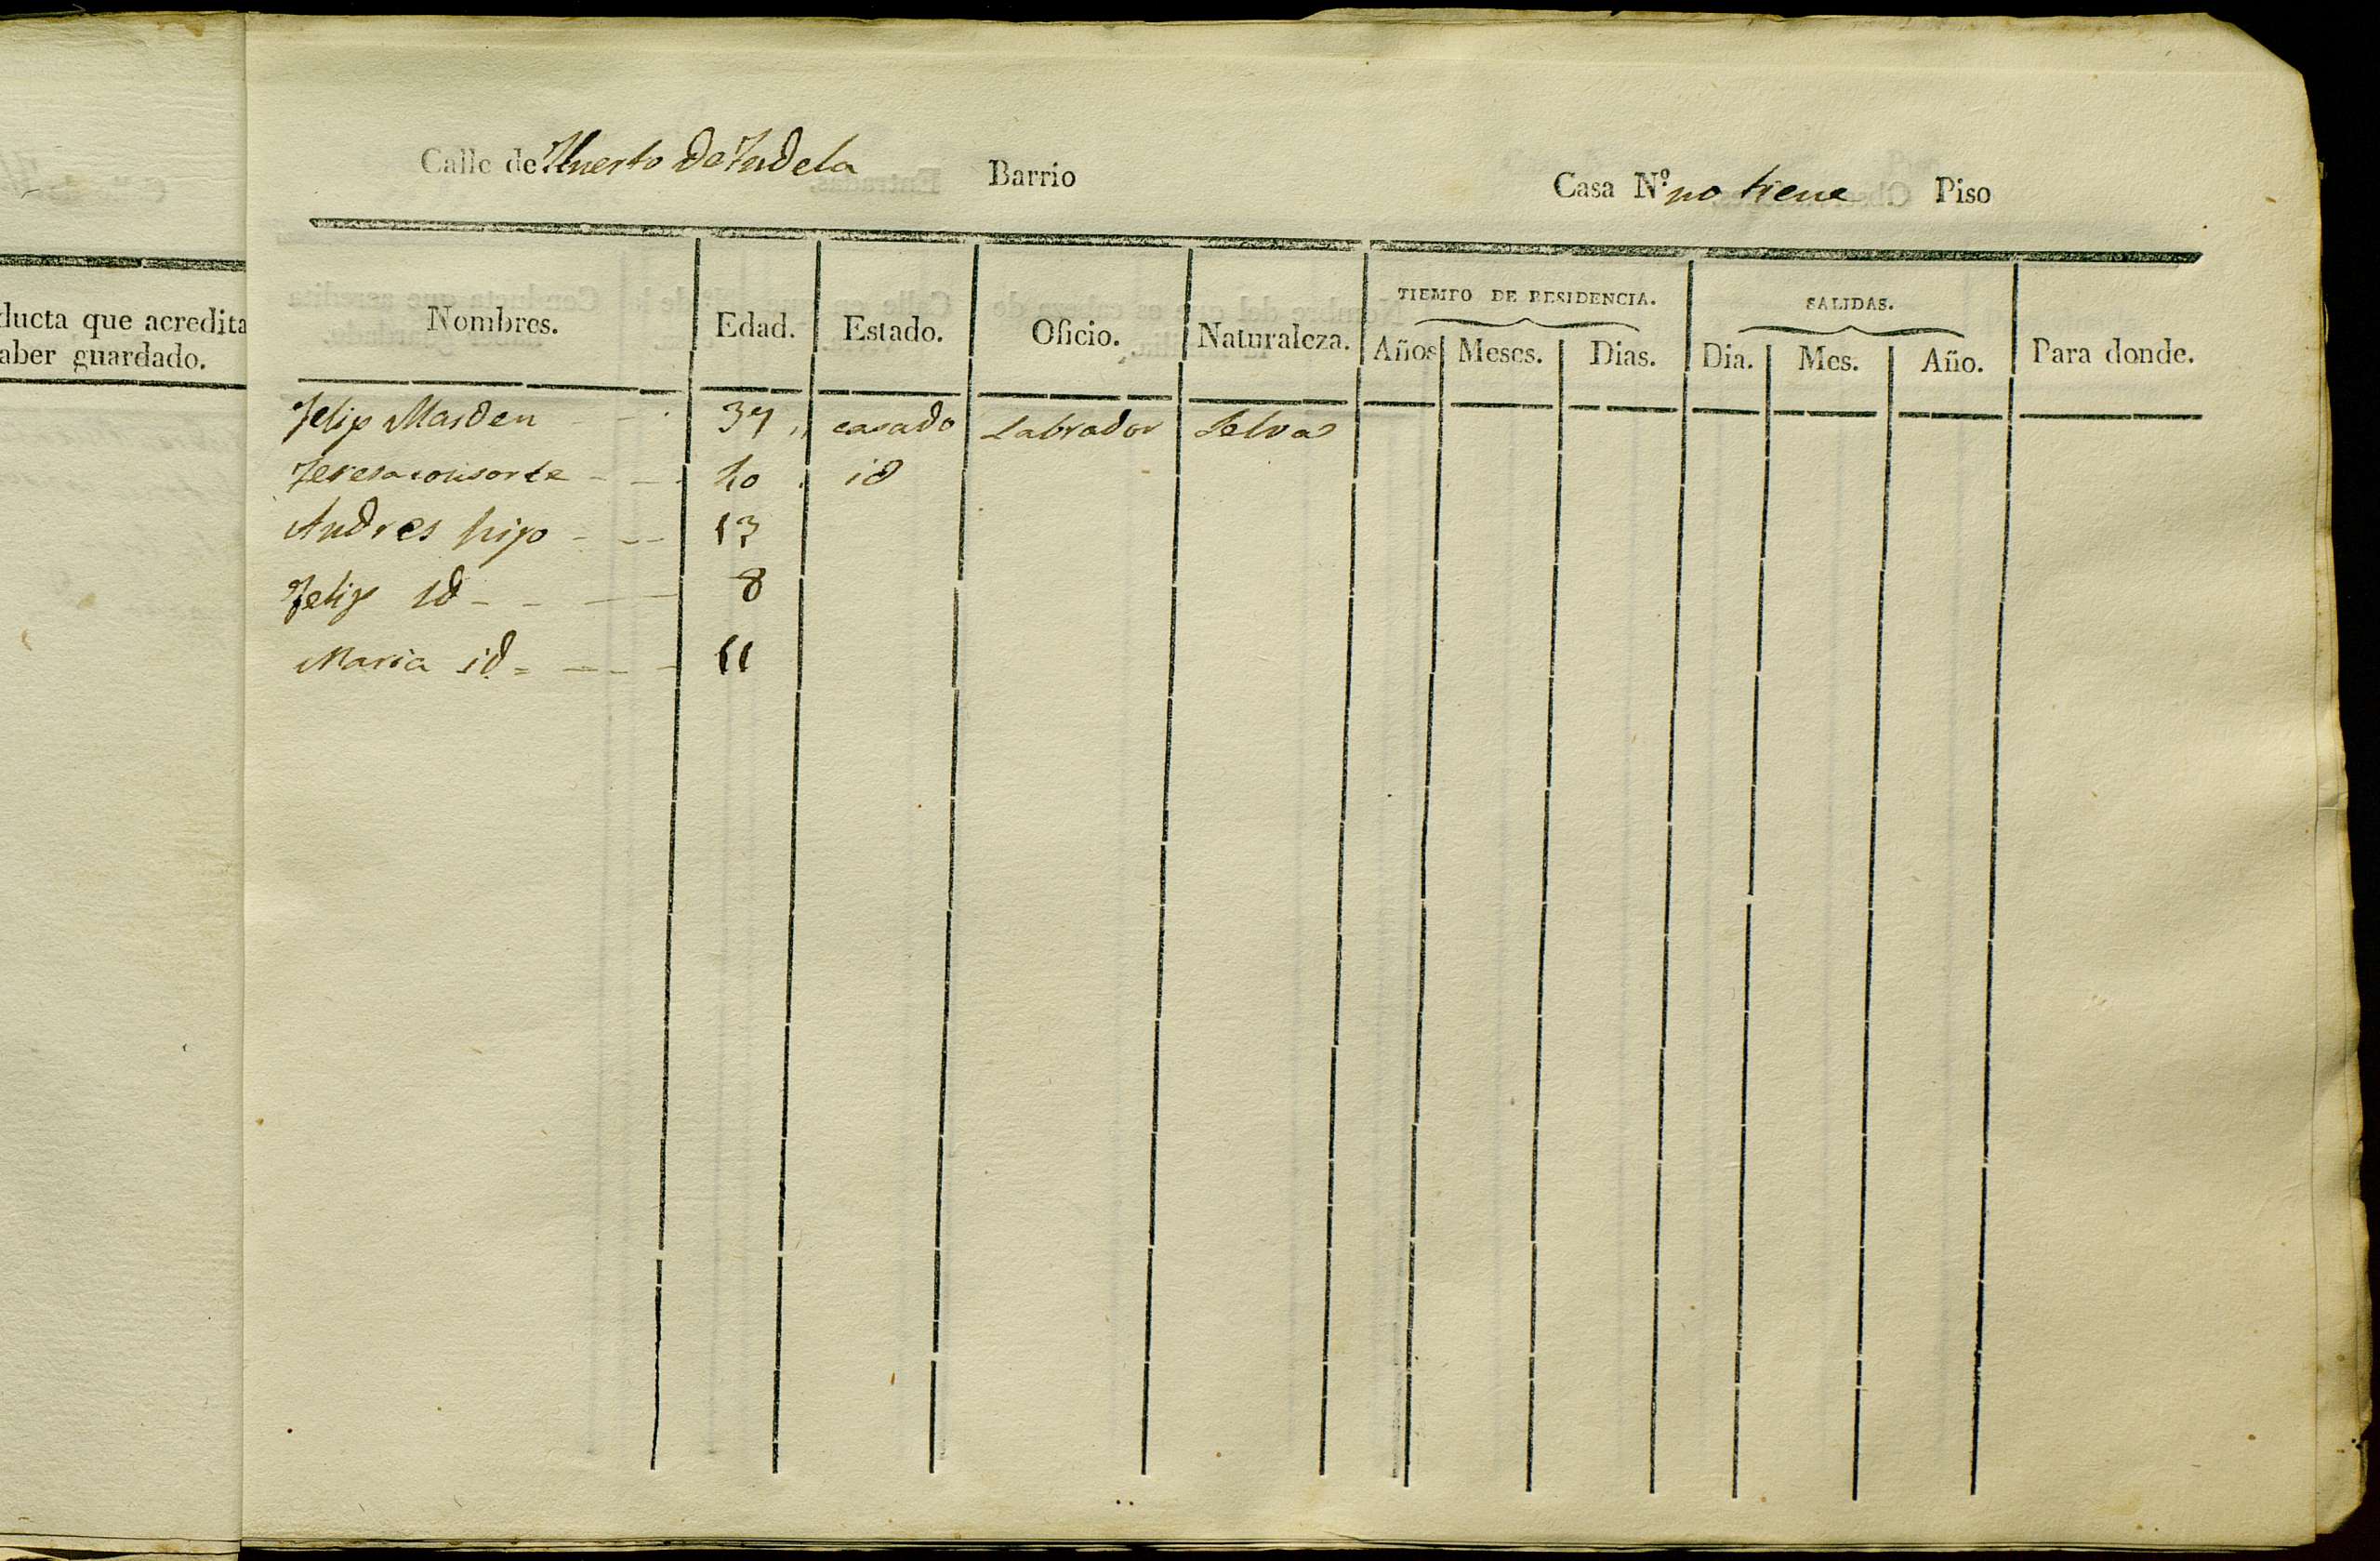 ducta que acredita
aber guardado.
Calle de Huerto de Tudela Barrio Casa N.º no tiene Piso
Nombres. Edad. Estado. Oficio. Naturaleza. TIEMPO DE RESIDENCIA. SALIDAS. Para donde.
Años Meses. Dias. Dia. Mes. Año.
Felip Masden 37 casado Labrador Selva
Teresa consorte 40 id
Andres hijo 13
Felip id 8
Maria id 11